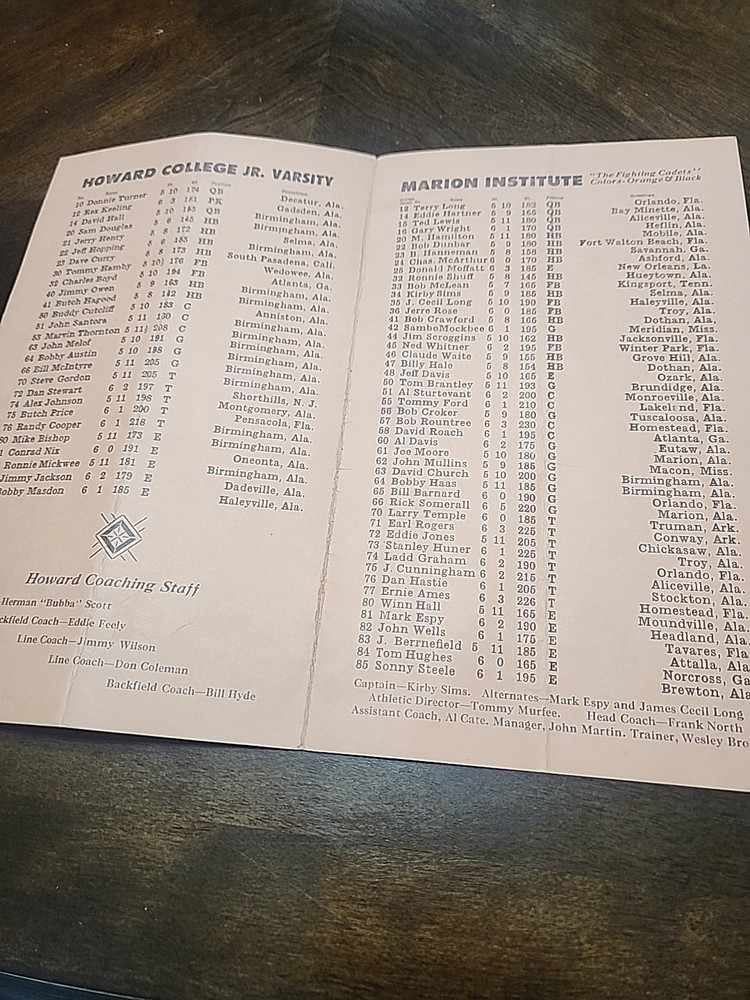 HOWARD COLLEGE JR. VARSITY
No. Name Ht. Wt. Position Hometown
10 Donnie Turner 5 10 174 QB Decatur, Ala.
12 Rex Keeling 6 3 181 PK Gadsden, Ala.
14 David Hall 5 10 185 QB Birmingham, Ala.
20 Sam Douglas 5 8 145 HB Birmingham, Ala.
21 Jerry Henry 5 8 172 HB Selma, Ala.
22 Jeff Hopping 5 6 153 HB Birmingham, Ala.
23 Dave Curry 5 8 173 HB South Pasadena, Cal.
30 Tommy Hamby 5 10½ 176 FB Wedowee, Ala.
32 Charles Boyd 5 10 194 FB Atlanta, Ga.
40 Jimmy Owen 5 9 163 HB Birmingham, Ala.
41 Butch Hagood 5 8 142 HB Birmingham, Ala.
50 Buddy Cutcliff 5 10 183 C Anniston, Ala.
51 John Santora 5 11 180 C Birmingham, Ala.
53 Marvin Thornton 5 11½ 208 C Birmingham, Ala.
63 John Melof 5 10 191 G Birmingham, Ala.
64 Bobby Austin 5 10 198 G Birmingham, Ala.
66 Bill McIntyre 5 11 205 G Birmingham, Ala.
70 Steve Gordon 5 11 205 T Birmingham, Ala.
72 Dan Stewart 6 2 197 T Shorthills, N. J.
74 Alex Johnson 5 11 198 T Montgomery, Ala.
75 Butch Price 6 1 200 T Pensacola, Fla.
76 Randy Cooper 6 1 218 T Birmingham, Ala.
80 Mike Bishop 5 11 173 E Birmingham, Ala.
Conrad Nix 6 0 191 E Oneonta, Ala.
Ronnie Mickwee 5 11 181 E Birmingham, Ala.
Jimmy Jackson 6 2 179 E Dadeville, Ala.
Bobby Masdon 6 1 185 E Haleyville, Ala.
Howard Coaching Staff
Herman "Bubba" Scott
ckfield Coach—Eddie Feely
Line Coach—Jimmy Wilson
Line Coach—Don Coleman
Backfield Coach—Bill Hyde
MARION INSTITUTE "The Fighting Cadets"
Colors-Orange & Black
12 Terry Long 5 10 182 QB Orlando, Fla.
14 Eddie Hartner 5 9 165 QB Bay Minette, Ala.
15 Ted Lewis 5 11 180 QB Aliceville, Ala.
16 Gary Wright 6 1 170 QB Heflin, Ala.
20 M. Hamilton 5 11 180 HB Mobile, Ala.
22 Bob Dunbar 5 9 180 HB Fort Walton Beach, Fla.
23 B. Hanneman 5 8 158 HB Savannah, Ga.
24 Chas McArthur 6 0 170 HB Ashford, Ala.
25 Donald Moffatt 6 3 185 E New Orleans, La.
32 Ronnie Shuff 5 8 145 HB Hueytown, Ala.
33 Bob McLean 5 7 165 FB Kingsport, Tenn.
34 Kirby Sims 5 9 185 HB Selma, Ala.
35 J. Cecil Long 5 10 190 FB Haleyville, Ala.
36 Jere Rose 6 0 185 FB Troy, Ala.
41 Bob Crawford 5 8 165 HB Dothan, Ala.
42 SamboMockbee 6 1 195 G Meridian, Miss.
44 Jim Scroggins 5 10 162 HB Jacksonville, Fla.
45 Ned Whitner 6 2 195 FB Winter Park, Fla.
46 Claude Waite 5 9 155 HB Grove Hill, Ala.
47 Billy Hale 5 8 154 HB Dothan, Ala.
48 Jeff Davis 5 10 165 E Ozark, Ala.
50 Tom Brantley 5 11 193 G Brundige, Ala.
51 Al Sturtevant 6 2 200 C Monroeville, Ala.
55 Tommy Ford 6 1 210 C Lakeland, Fla.
56 Bob Croker 5 9 180 G Tuscaloosa, Ala.
57 Bob Rountree 6 3 230 C Homestead, Fla.
58 David Roach 6 1 195 C Atlanta, Ga.
60 Al Davis 6 2 175 G Eutaw, Ala.
61 Joe Moore 5 10 180 G Marion, Ala.
62 John Mullins 5 9 185 G Macon, Miss.
63 David Church 5 10 200 G Birmingham, Ala.
64 Bobby Haas 5 11 185 G Birmingham, Ala.
65 Bill Barnard 6 0 190 G Orlando, Fla.
66 Rick Somerall 6 5 220 G Marion, Ala.
70 Larry Temple 6 0 185 T Truman, Ark.
71 Earl Rogers 6 3 225 T Conway, Ark.
72 Eddie Jones 5 11 205 T Chickasaw, Ala.
73 Stanley Huner 6 1 225 T Troy, Ala.
74 Ladd Graham 6 2 190 T Orlando, Fla.
75 J. Cunningham 6 2 215 T Aliceville, Ala.
76 Dan Hastie 6 1 205 T Stockton, Ala.
77 Ernie Ames 6 3 226 T Homestead, Fla.
80 Winn Hall 5 11 165 E Moundville, Ala.
81 Mark Espy 6 2 190 E Headland, Ala.
82 John Wells 6 1 175 E Tavares, Fla
83 J. Berrnefield 5 11 185 E Attalla, Ala.
84 Tom Hughes 6 0 165 E Norcross, Ga
85 Sonny Steele 6 1 195 E Brewton, Ala
Captain—Kirby Sims. Alternates—Mark Espy and James Cecil Long
Athletic Director—Tommy Murfee. Head Coach—Frank North
Assistant Coach, Al Cate. Manager, John Martin. Trainer, Wesley Bro